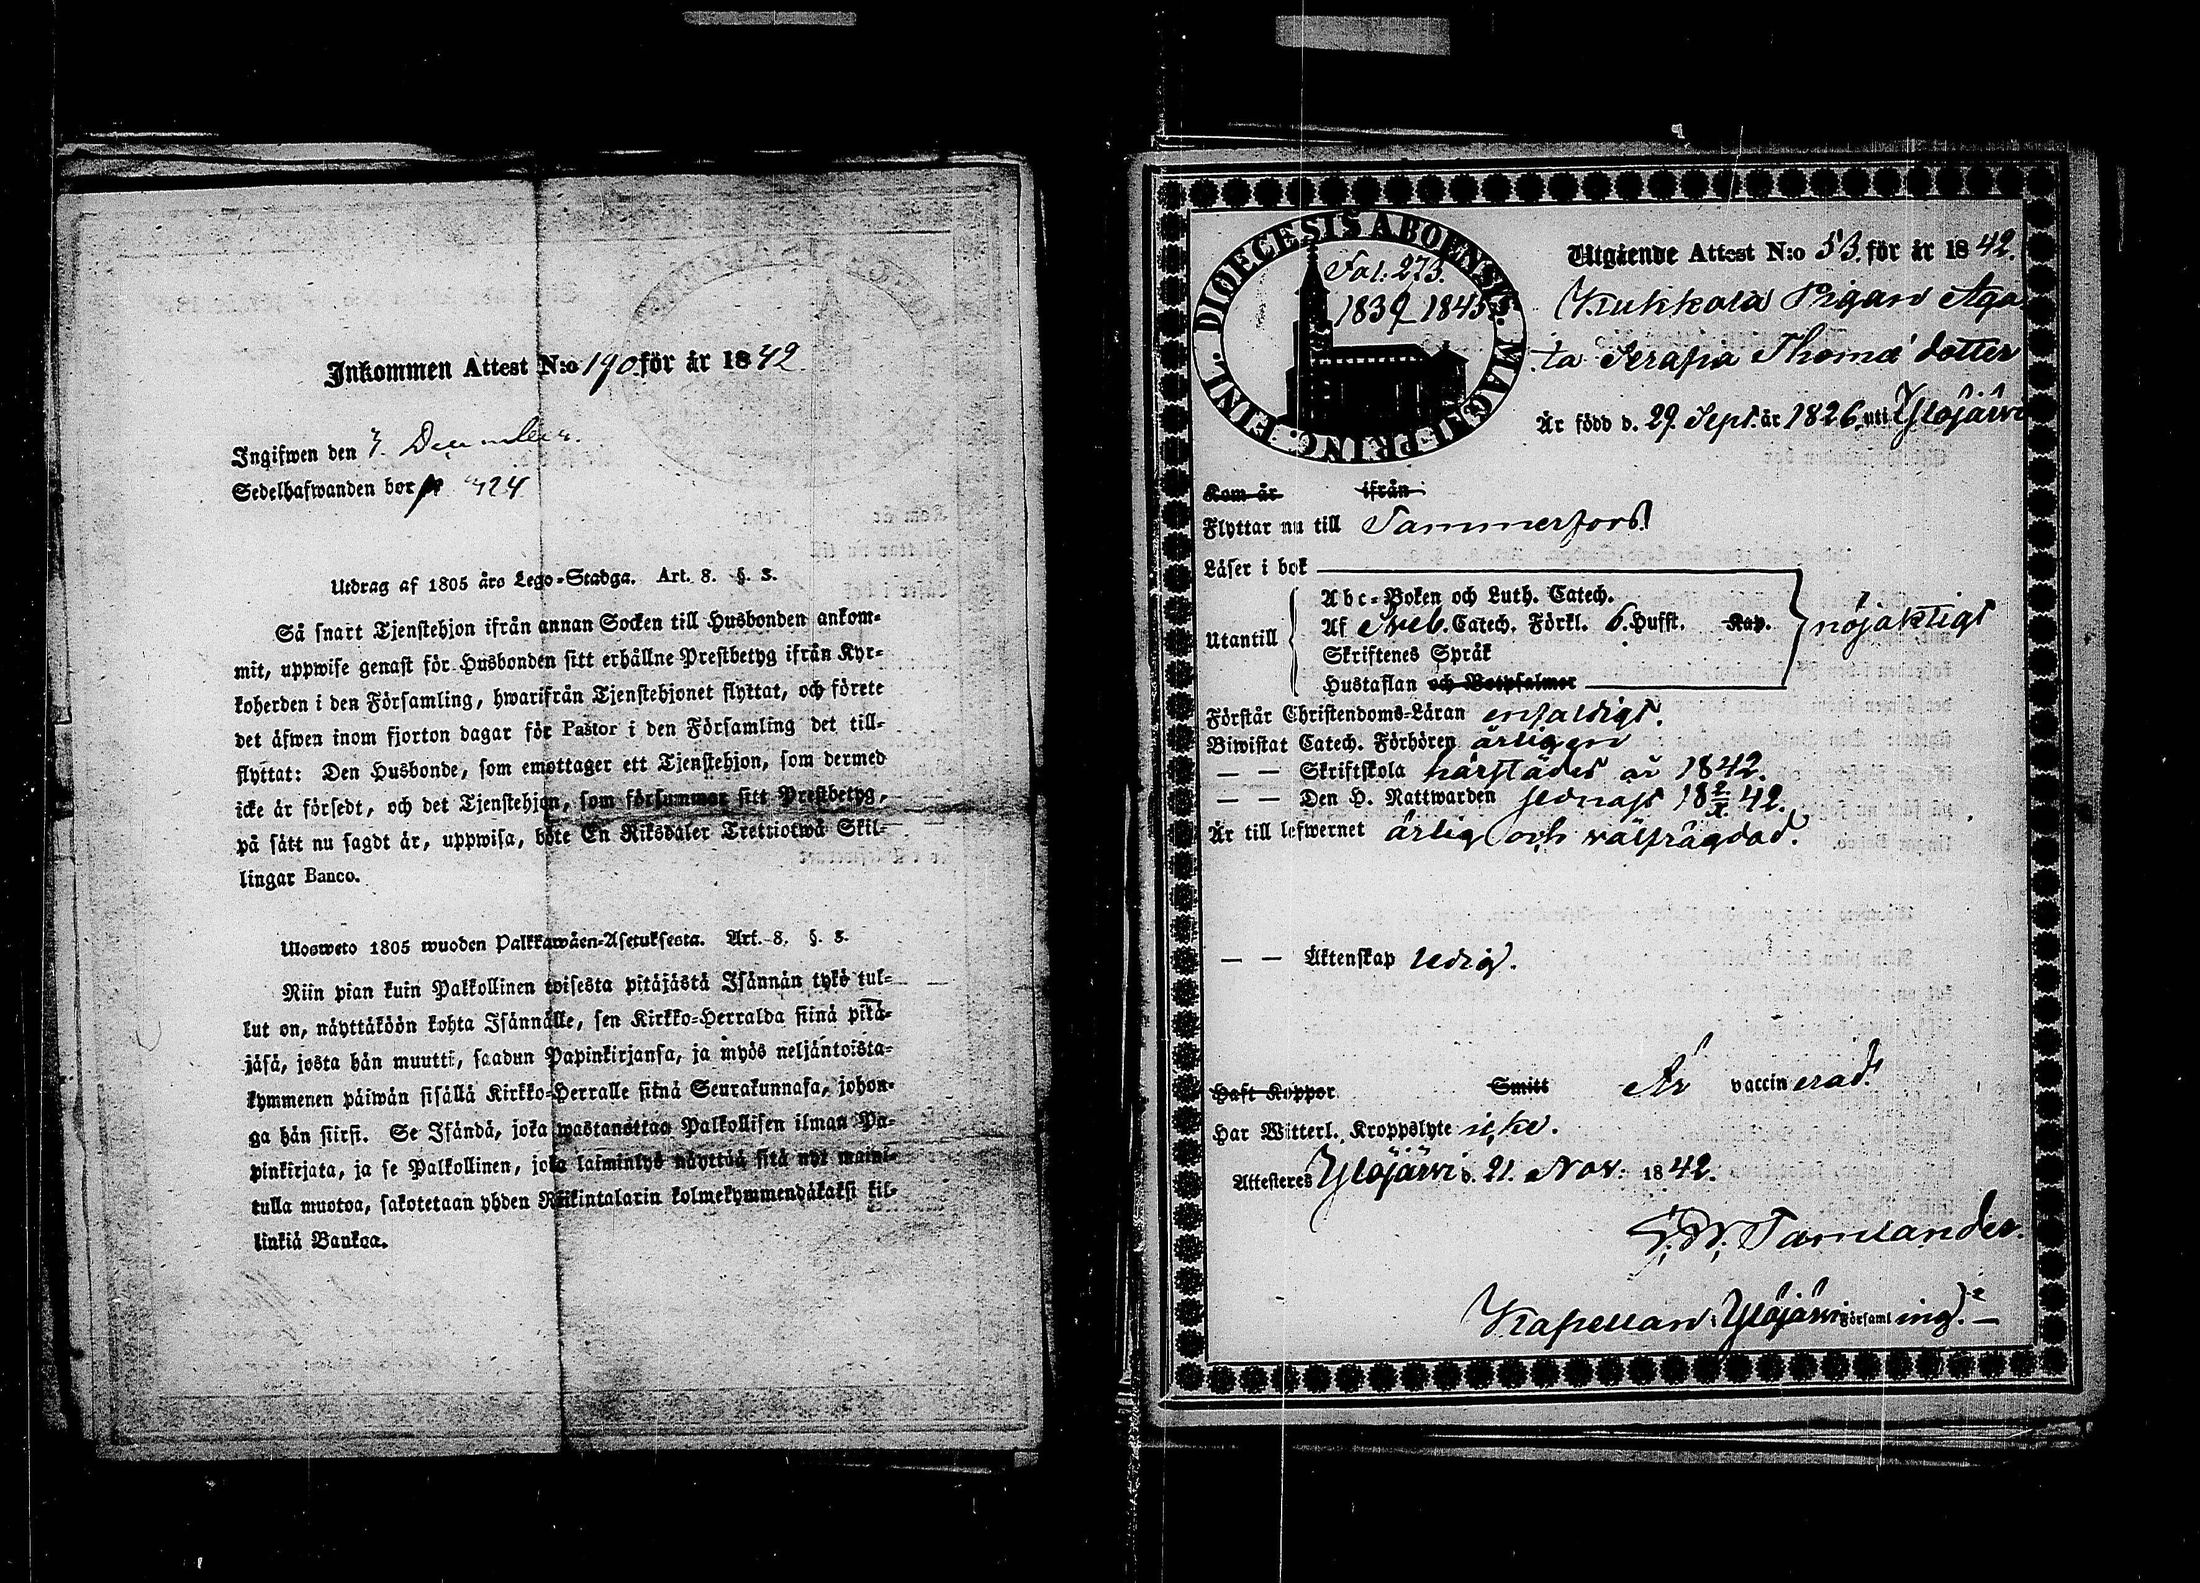 Inkommen Attest N:o 190 för år 1842.
Ingifwen den 3. December.
Sedelhafwanden bor p 424
Utdrag af 1805 års Lego-Stadga. Art. 8. §. 3.
Så snart Tjenstehjon ifrån annan Socken till Husbonden ankom-
mit, uppwise genast för Husbonden sitt erhållne Prestbetyg ifrån Kyr-
koherden i den Församling, hwarifrån Tjenstehjonet flyttat, och förete
det äfwen inom fjorton dagar för Pastor i den Församling det till-
flyttat: Den Husbonde, som emottager ett Tjenstehjon, som dermed
icke är försedt, och det Tjenstehjon, som försummar sitt Prestbetyg,
på sätt nu sagdt är, uppwisa, böte En Riksdaler Trettiotwå Skil-
lingar Banco.
Ulosweto 1805 wuoden Palkkawäen-Asetuksesta. Art. 8. §. 3.
Niin pian kuin Palkollinen toisesta pitäjästä Isännän tykö tul-
lut on, näyttäköön kohta Isännälle, sen Kirkko-Herralda siinä pitä-
jäsä, josta hän muutti, saadun Papinkirjansa, ja myös neljäntoista-
kymmenen päiwän sisällä Kirkko-Herralle siinä Seurakunnasa, johon-
ga hän siirsi. Se Isändä, joka wastanottaa Palkollisen ilman Pa-
pinkirjata, ja se Palkollinen, joka laiminlyö näyttää sitä nyt maini-
tulla muotoa, sakotetaan yhden Riikintalarin kolmekymmendäkaksi kil-
linkiä Bankoa.
DIOECESIS ABOENSIS. MAGNI PRINC. FINL.
Fol. 273.
1839-1845.
Utgående Attest N:o 53. för år 1842.
Kukkola Pigan Aga
ta Serafia Thomæ dotter
Är född d. 29. Sept. år 1826 uti Ylöjärwi
Kom år ifrån
Flyttar nu till Tammerfors.
Läser i bok
Utantill
Abc-Boken och Luth. Catech.
Af Sveb. Catech. Förkl. 6. Hufst. Kap.
Skriftenes Språk
Hustaflan och Botpsalmer
nöjaktigt
Förstår Christendoms-Läran enfaldigt.
Biwistat Catech. Förhören årligen
— — Skriftskola härstädes år 1842.
— — Den H. Nattwarden sednast 18 2/X 42.
Är till lefwernet ärlig och välfrägdad.
— — Äktenskap ledig.
Haft Koppor Smitt Är vaccinerad.
Har Witterl. Kroppslyte icke.
Attesteres Ylöjärwi d. 21. Nov. 1842.
Tamlander.
Kapellan i Ylöjärwi Församling. —